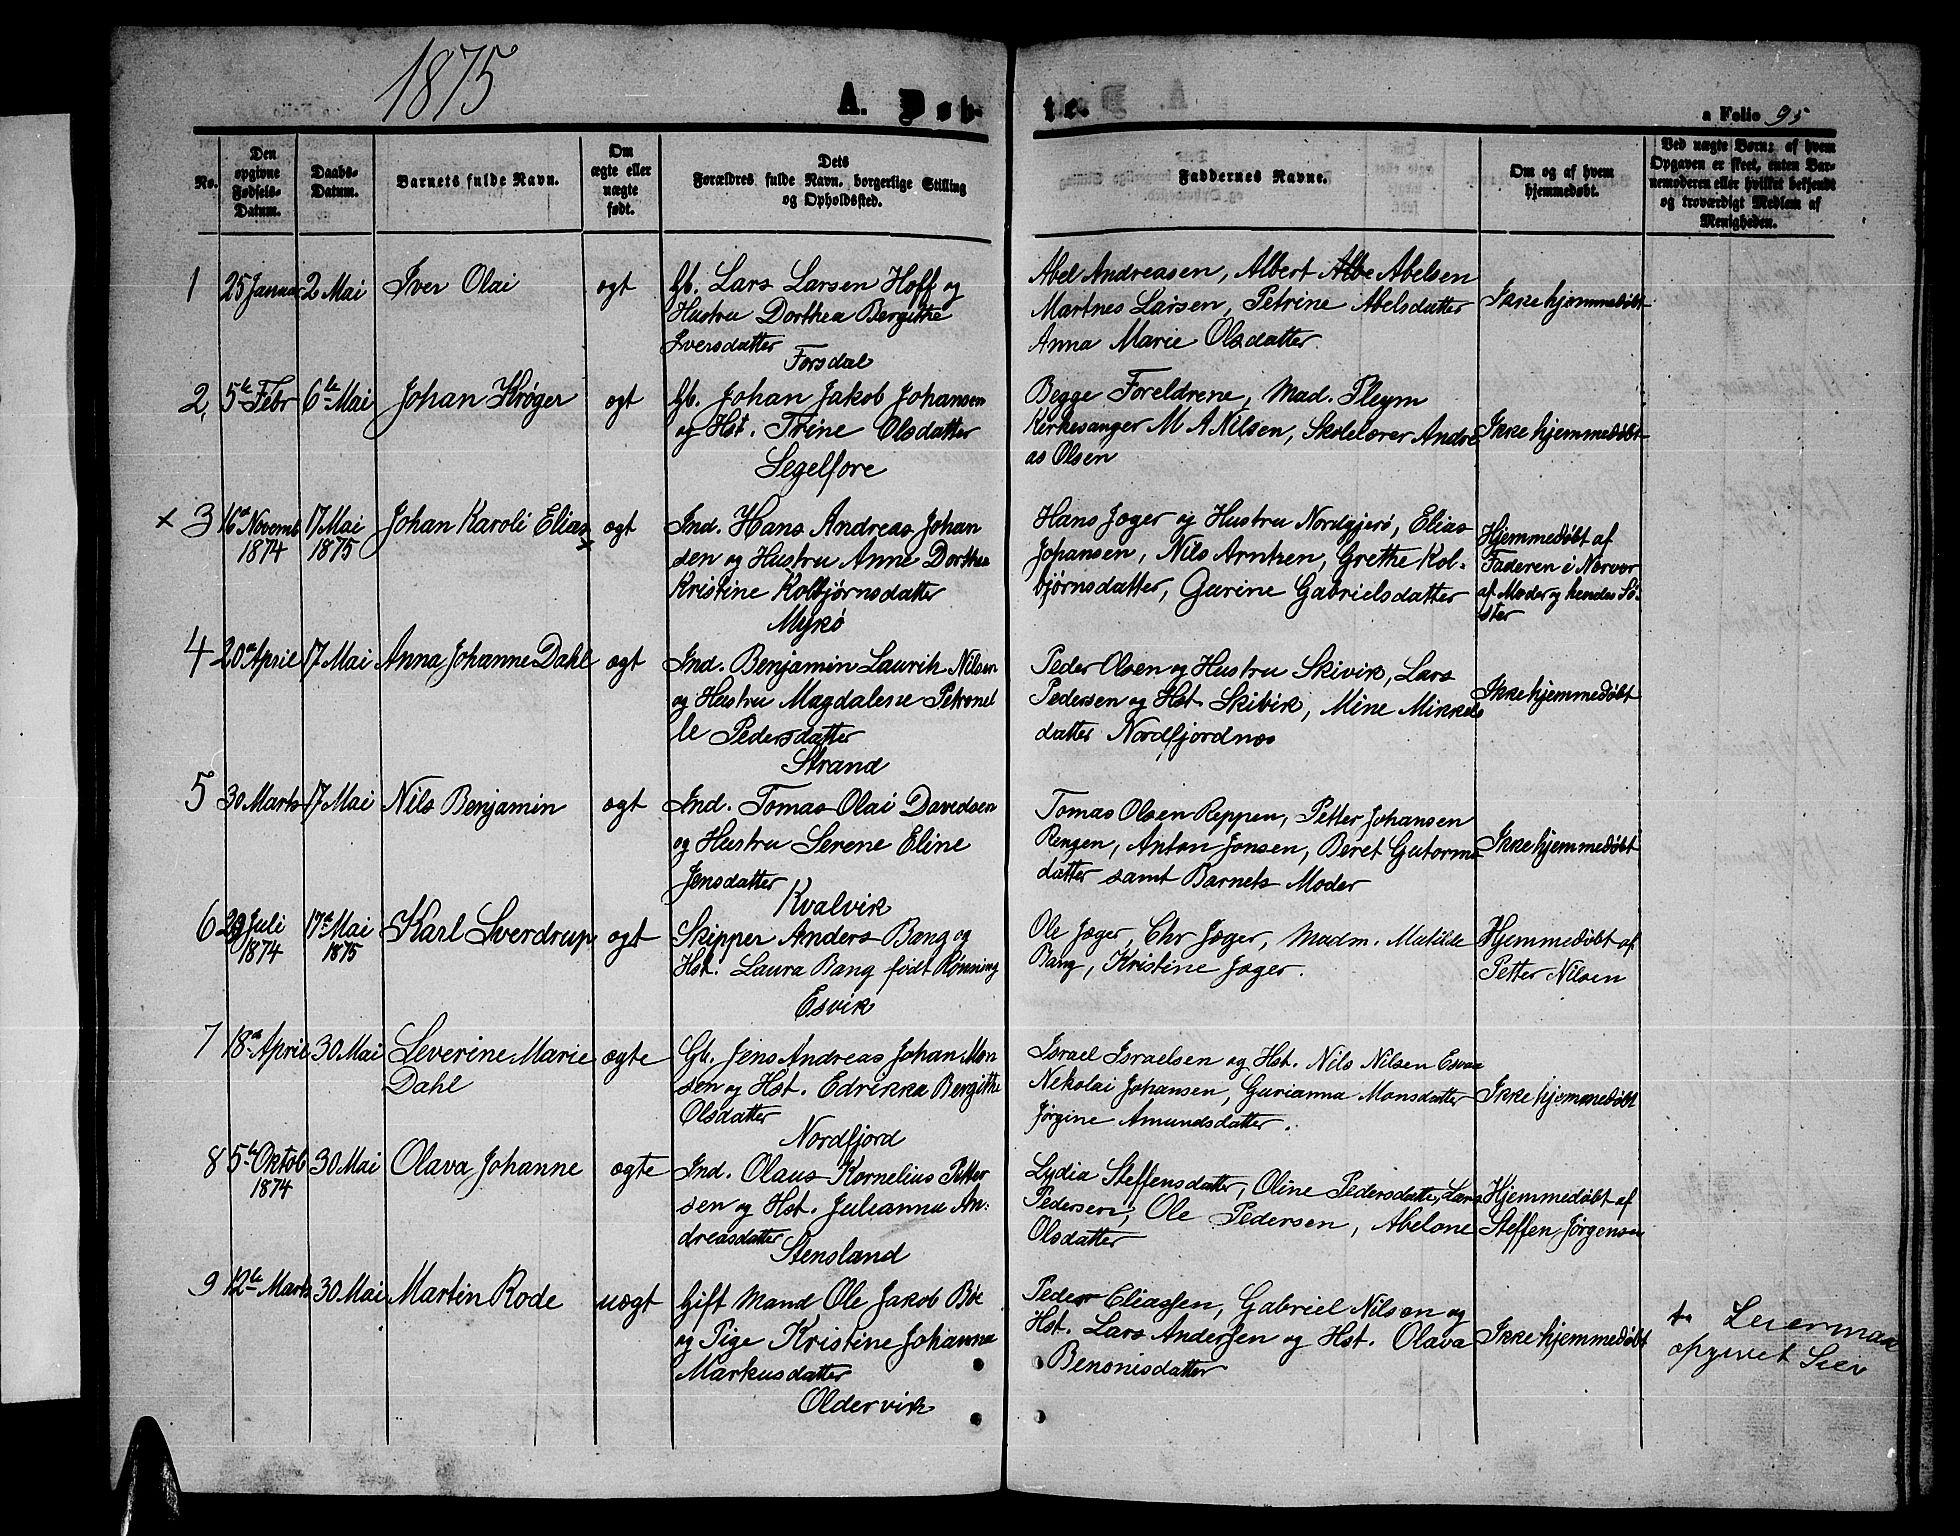 1875
A. Døb- te.
a Folio 95
No.
Den opgivne Fødsels-Datum.
Daabs-Datum.
Barnets fulde Navn.
Om ægte eller uægte født.
Dets Forældres fulde Navn, borgerlige Stilling og Opholdssted.
Faddernes Navne.
Om og af hvem hjemmedøbt.
Ved uægte Børn: af hvem Opgaven er skeet, enten Barnemoderen eller hvilket bekjendt og troværdigt Medlem af Menigheden.
1 25 Januar 2 Mai Iver Olai ogt Gb. Lars Larsen Hoff og
Hustru Dorthea Bergithe
Iversdatter
Forsdal
Abel Andreasen, Albert Abelsen
Martnes Larsen, Petrine Abelsdatter
Anna Marie Olsdatter.
Ikke hjemmedøbt
2, 5te Febr 6te Mai Johan Krøger ogt Gb. Johan Jakob Johansen
og Hst. Trine Olsdatter
Segelfore
Begge Foreldrene, Mad. Pleym
Kirkesanger M A Nilsen, Skolelærer Andre
as Olsen
Ikke hjemmedøbt
x 3 16de Novemb 17 Mai Johan Karoli Elias x ogt Ind. Hans Andreas Johan
1874 1875 sen og Hustru Anne Dorthea
Kristine Kolbjørnsdatter
Myrkø
Hans Jæger og Hustru Nordgjerø, Elias
Johansen, Nils Arntzen, Grethe Kol-
bjørnsdatter, Gurine Gabrielsdatter
Hjemmedøbt af
Faderen i Norvor
af Moder og hendes Sø-
ster
4 20de April 17 Mai Anna Johanne Dahl ogt Ind. Benjamin Laurits Nilsen
og Hustru Magdalene Petronel
le Pedersdatter
Strand
Peder Olsen og Hustru Skivik, Lars
Pedersen og Hst. Skibik, Mine Mikkels
datter Nordfjordnæs
Ikke hjemmedøbt
5 30 Marts 17 Mai Nils Benjamin ogt Ind. Tomas Olai Davedsen
og Hustru Serene Eline
Jensdatter
Kvalvik
Tomas Olsen Reppen, Petter Johansen
Rengen, Anton Jonsen, Beret Gutorms
datter samt Barnets Moder
Ikke hjemmedøbt
6 29 Juli 17de Mai Karl Sverdrup ogt Skipper Anders Bang og
1874 1875 Hst. Laura Bang født Rønning
Esvik
Ole Jæger, Chr Jæger, Madm. Matilde
Bang, Kristine Jæger.
Hjemmedøbt af
Petter Nilsen
7 18de April 30 Mai Severine Marie ægte Gb. Jens Andreas Johan Mon
Dahl sen og Hst. Edrikka Bergithe
Olsdatter
Nordfjord
Israel Israelsen og Hst. Nils Nilsen
Nekolai Johansen, Gurianna Monsdatter
Jørgine Amundsdatter.
Ikke hjemmedøbt
8 5te Oktob 30 Mai Olava Johanne ogte Ind. Olaus Kornelius Petter
1874 sen og Hst. Juleanna An-
dreasdatter
Stensland
Lydia Steffensdatter, Oline Pedersdatter, Lars
Pedersen, Ole Pedersen, Abelone
Olsdatter
Hjemmedøbt af
Steffen Jørgensen
9 12te Marts 30 Mai Martin Rode uogt Gift Mand Ole Jakob Bøe
og Pige Kristine Johanna
Markusdatter
Oldervik
Peder Eliassen, Gabriel Nilsen og
Hst. Lars Andersen og Hst. Olava
Benonisdatter
Ikke hjemmedøbt
Leierman
opgivet